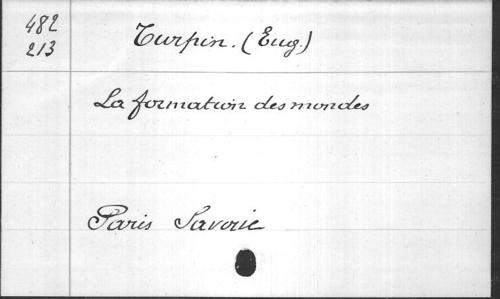 482
213
Turpin. (Eug.)
La formation des mondes
Paris Savoie